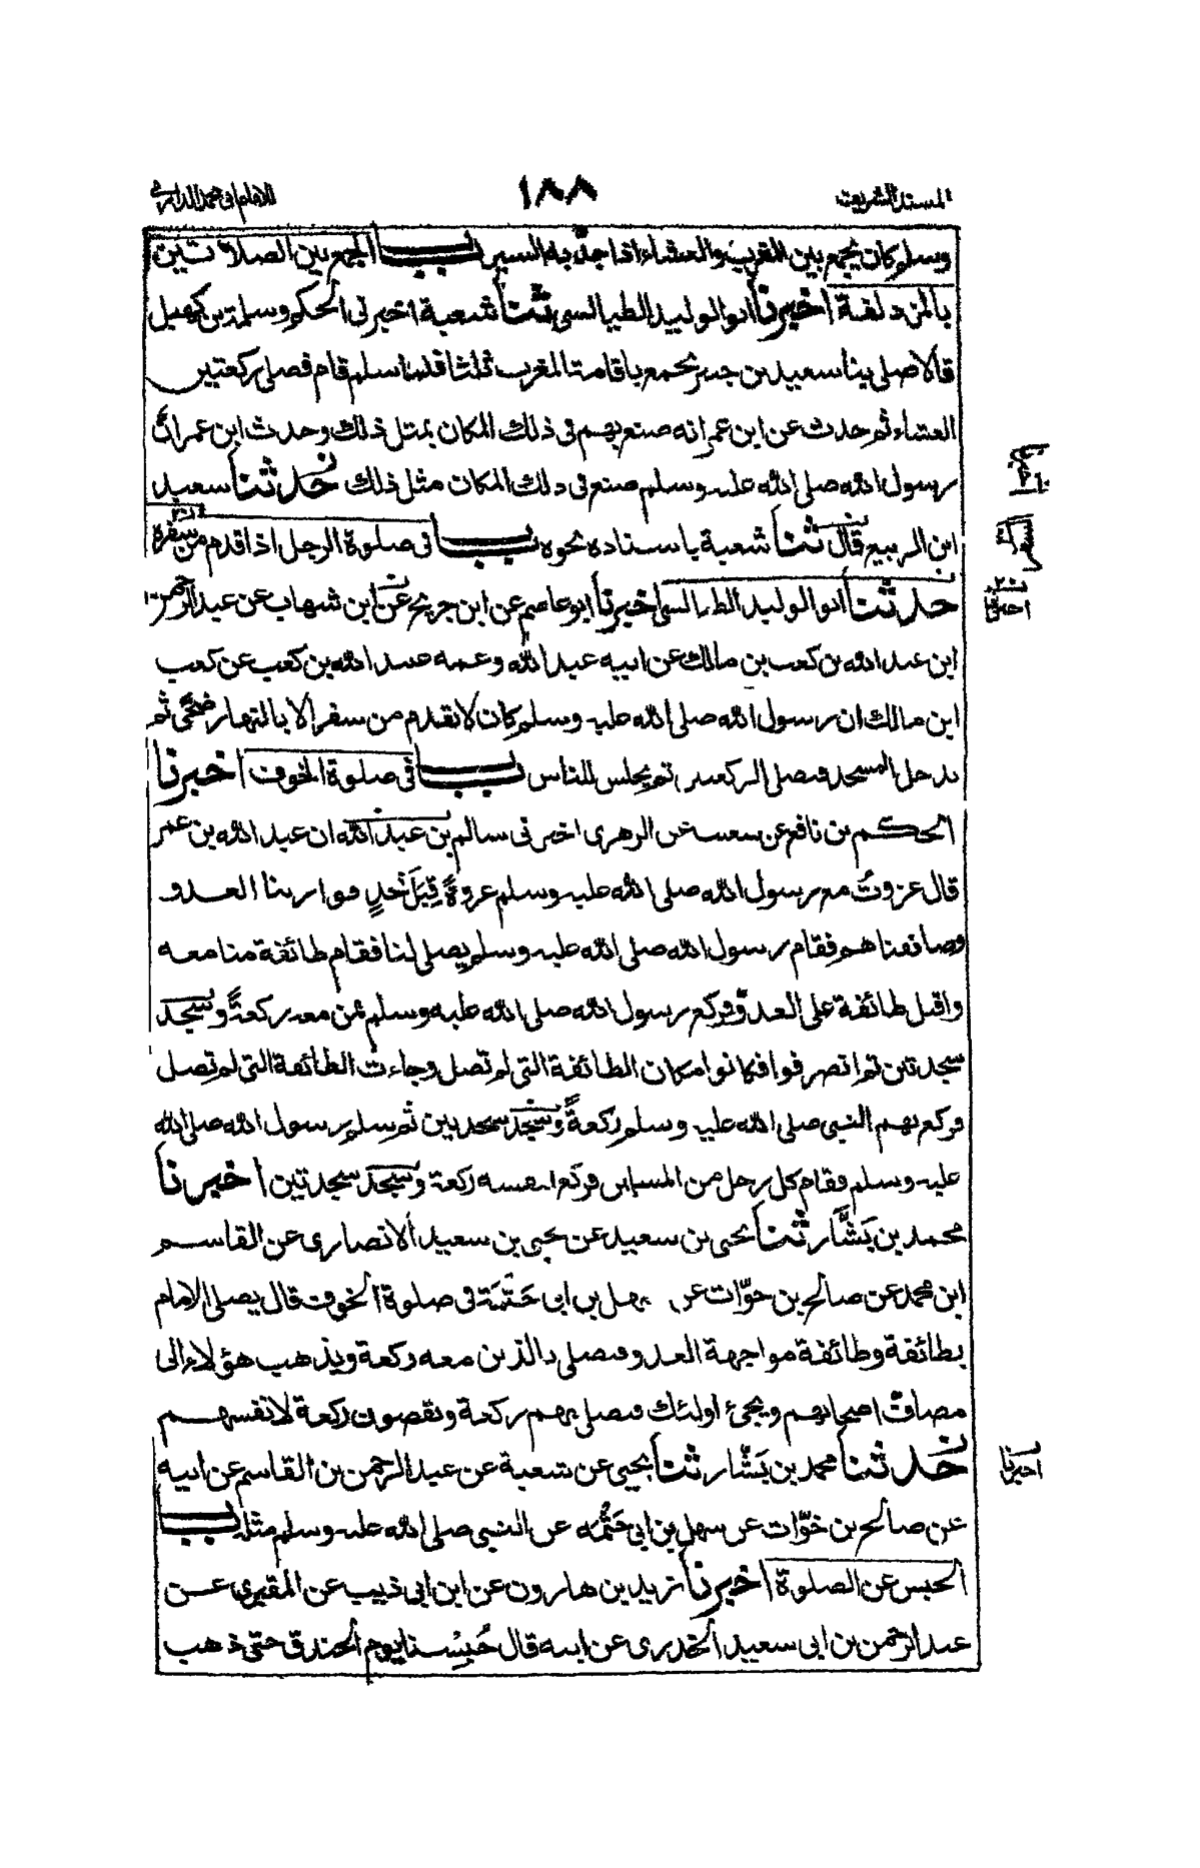 المسند الشريف ١٨٨ للامام ابى محمد الدارمى
وسلم كان يجمع بين المغرب والعشاء اذا جدّ به السير باب الجمع بين الصلاتين
بالمزدلفة اخبرنا ابو الوليد الطيالسى ثنا شعبة اخبرنى الحكم وسلمة بن كهيل
قالا صلى بنا سعيد بن جبير بجمع باقامة المغرب ثلثا فلما سلم قام فصلى ركعتين
العشاء ثم حدث عن ابن عمر انه صنع بهم فى ذلك المكان بمثل ذلك وحدث ابن عمر انّ
رسول الله صلى الله عليه وسلم صنع فى ذلك المكان مثل ذلك حدثنا سعيد
ابن الربيع قال ثنا شعبة باسناده نحوه باب فى صلوة الرجل اذا قدم من سفره
حدثنا ابو الوليد الطيالسى اخبرنا ابو عاصم عن ابن جريج عن ابن شهاب عن عبد الرحمن
ابن عبد الله بن كعب بن مالك عن ابيه عبد الله وعمه عبيد الله بن كعب عن كعب
ابن مالك ان رسول الله صلى الله عليه وسلم كان لا يقدم من سفر الا بالنهار ضحًى ثم
يدخل المسجد فيصلى الركعتين ثم يجلس للناس باب فى صلوة الخوف اخبرنا
الحكم بن نافع عن شعيب عن الزهرى اخبرنى سالم بن عبد الله ان عبد الله بن عمر
قال غزوتُ مع رسول الله صلى الله عليه وسلم غزوةً قِبَلَ نجدٍ فوازينا العدو
وصاففناهم فقام رسول الله صلى الله عليه وسلم يصلى لنا فقام طائفة منا معه
واقبل طائفة على العدوّ فركع رسول الله صلى الله عليه وسلم بمن معه ركعةً وسجد
سجدتين ثم انصرفوا فكانوا مكان الطائفة التى لم تصل وجاءت الطائفة التى لم تصل
فركع بهم النبى صلى الله عليه وسلم ركعةً وسجد سجدتين ثم سلم رسول الله صلى الله
عليه وسلم فقام كل رجل من المسلمين فركع لنفسه ركعة وسجد سجدتين اخبرنا
محمد بن بَشَّار ثنا يحيى بن سعيد عن يحيى بن سعيد الانصارى عن القاسم
ابن محمد عن صالح بن خوّات عن سهل بن ابى حَثْمَة فى صلوة الخوف قال يصلى الامام
بطائفة وطائفة مواجهة العدو فيصلى بالذين معه ركعة ويذهب هؤلاء الى
مصافّ اصحابهم ويجئ اولئك فيصلى بهم ركعة ويقضون ركعة لانفسهم
حدثنا محمد بن بَشّار ثنا يحيى عن شعبة عن عبد الرحمن بن القاسم عن ابيه
عن صالح بن خوّات عن سهل بن ابى حَثْمه عن النبى صلى الله عليه وسلم مثله باب
الحبس عن الصلوة اخبرنا يزيد بن هارون عن ابن ابى ذيب عن المقبرى عن
عبد الرحمن بن ابى سعيد الخدرى عن ابيه قال حُبِسْنا يوم الخندق حتى ذهب
اخبرنا
اخبرنا